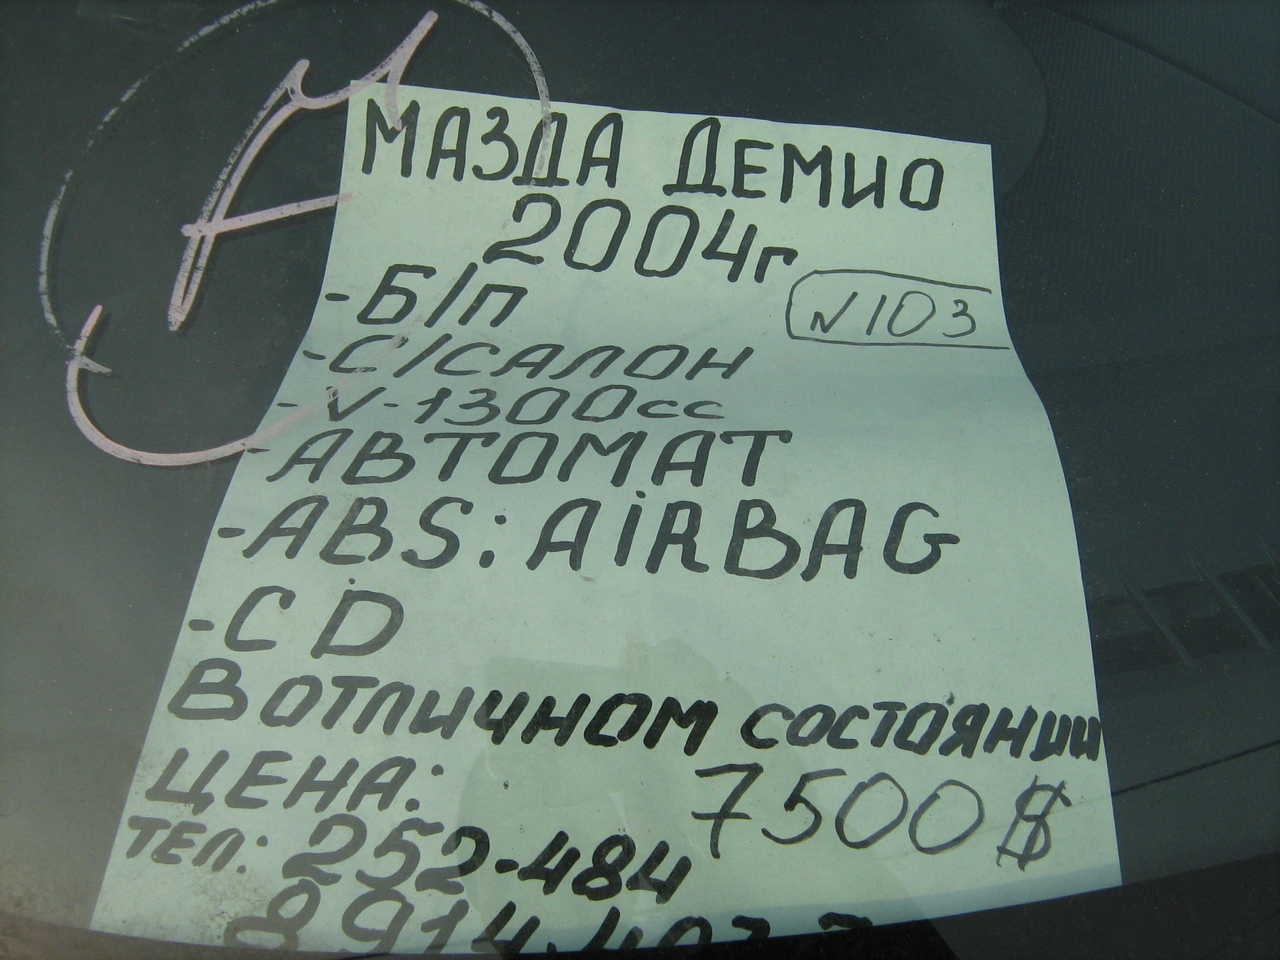 МАЗДА ДЕМИО
2004г
-Б/П
N103
-С/САЛОН
-V-1300cc
-АВТОМАТ
-ABS: AiRBAG
-CD
В ОТЛИЧНОМ СОСТОЯНИИ
ЦЕНА: 7500$
ТЕЛ: 252-484
8914